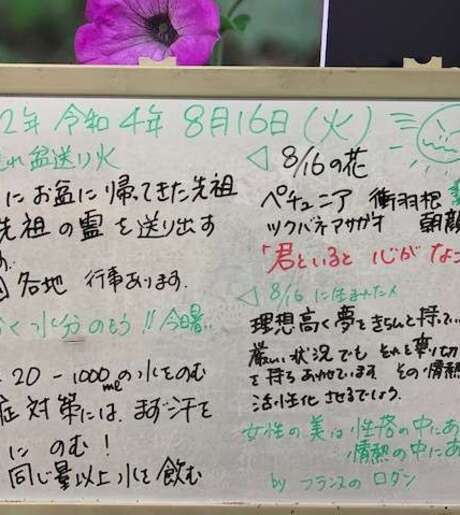 2年 令和4年 8月16日(火)
れ盆送り火
にお盆に帰ってきた先祖
先祖の霊を送り出す
す.
各地 行事あります.
く水分のもう!! 今日暑
20-1000meの水をのむ
症対策には、まず汗を
にのむ!
同じ量以上水を飲む
◁ 8/16の花
ペチュニア 衝羽根
ツクバネアサガオ 朝顔
「君といると 心がなご
◁ 8/16 に生まれた人
理想高く夢をきちんと持って
厳しい状況でも それを乗り切
を持ちあわせています. その情熱
活性化させるでしょう.
女性の美は性格の中にあ
情熱の中にあ
by フランスの ロダン